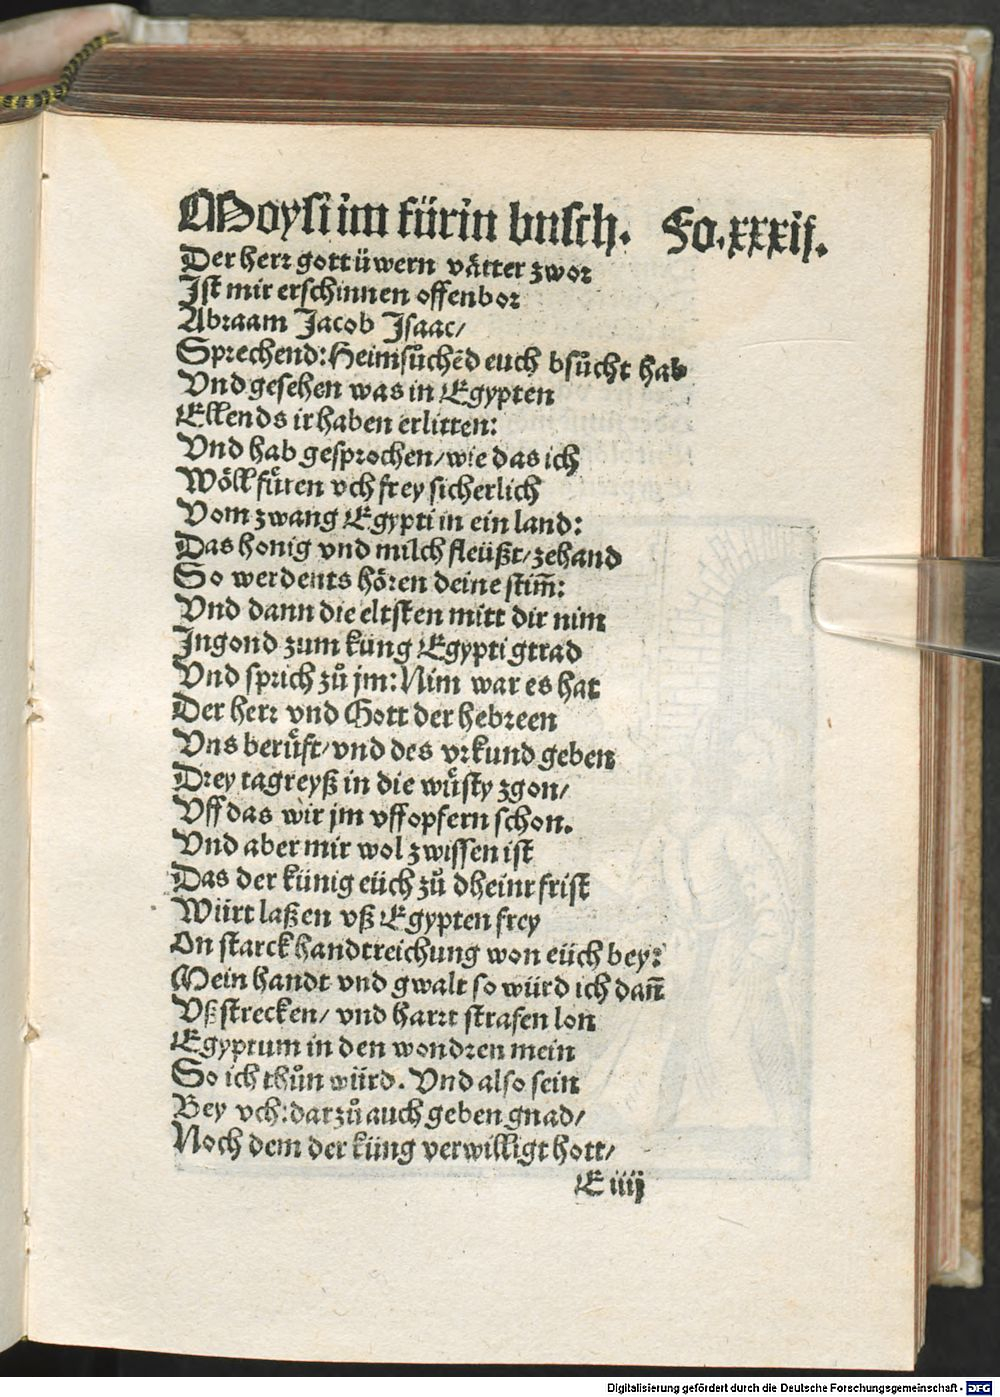 Moysi im fürin busch. Fo.xxxij.
Der herr gott üwern vätter zwor
Ist mir erschinnen offenbor
Abraam Jacob Isaac/
Sprechend: Heimsůchēd euch bsůcht hab
Vnd gesehen was in Egypten
Ellends ir haben erlitten:
Vnd hab gesprochen/ wie das ich
Wöll fůren vch frey sicherlich
Vom zwang Egypti in ein land:
Das honig vnd milch fleüßt/ zehand
So werdents hören deine stim̄:
Vnd dann die eltsten mitt dir nim
Ingond zum küng Egypti gtrad
Vnd sprich zů jm: Nim war es hat
Der herr vnd Gott der hebreen
Vns berůfft/ vnd des vrkund geben
Drey tagreyß in die wůsty zgon/
Vff das wir jm vffopfern schon.
Vnd aber mir wol zwissen ist
Das der künig eüch zů dheinr frist
Würt laßen vß Egypten frey
On starck handtreichung won eüch bey:
Mein handt vnd gwalt so würd ich dañ
Vßstrecken/ vnd harrt strafen lon
Egyptum in den wondren mein
So ich thůn würd. Vnd also sein
Bey vch: darzů auch geben gnad/
Noch dem der küng verwilligt hott/
E iiij
Digitalisierung gefördert durch die Deutsche Forschungsgemeinschaft - DFG